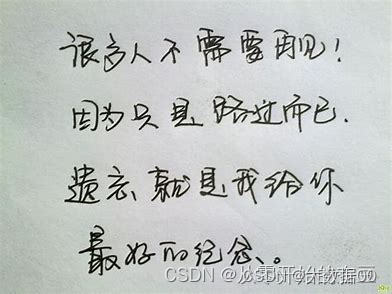 很多人不需要再见!
因为只是路过而已.
遗忘就是我给你
最好的纪念。
CSDN @从零开始大数据